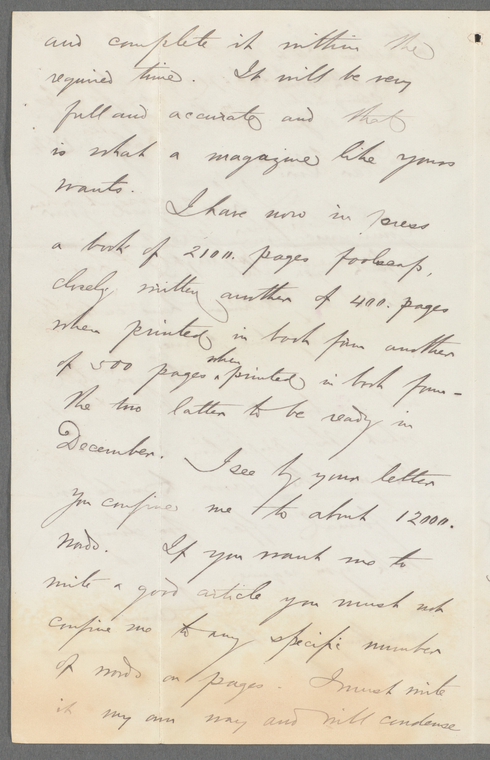 and complete it within the
required time. It will be very
full and accurate and that
is what a magazine like yours
wants.
I have now in press
a book of 2100. pages foolscap,
closely written another of 400. pages
when printed in book form another
of 500 pages when printed in book form -
the two latter to be ready in
December. I see by your letter
you confine me to about 12000.
words. If you want me to
write a good article you must not
confine me to any specific number
of words or pages. I must write
it my own way and will condense